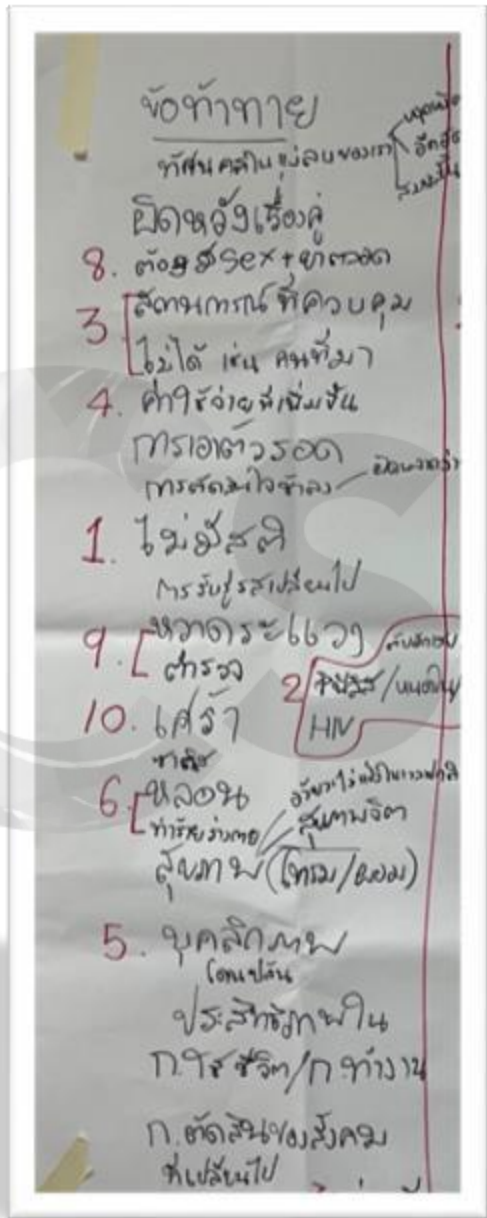 ข้อท้าทาย
ทัศนคติในแง่ลบของเรา
หงุดหงิด
อึดอัด
ผิดหวังเรื่องคู่
8. ต้องมี Sex + ยาตลอด
3 [สถานการณ์ที่ควบคุม
ไม่ได้ เช่น คนที่มา
4. ค่าใช้จ่ายที่เพิ่มขึ้น
การเอาตัวรอด
การตัดสินใจช้าลง
1. ไม่มีสติ
การรับรู้รสเปลี่ยนไป
9. [หวาดระแวง
ตำรวจ
2 ซิฟิลิส/หนองใน
HIV
10. เศร้า
6. [หลอน
ทำร้ายร่างกาย
สุขภาพจิต
สุขภาพ (โทรม/ผอม)
5. บุคลิกภาพ
โดนปล้น
ประสิทธิภาพใน
ก.ใช้ชีวิต/ก.ทำงาน
ก.ตัดสินของสังคม
ที่เปลี่ยนไป